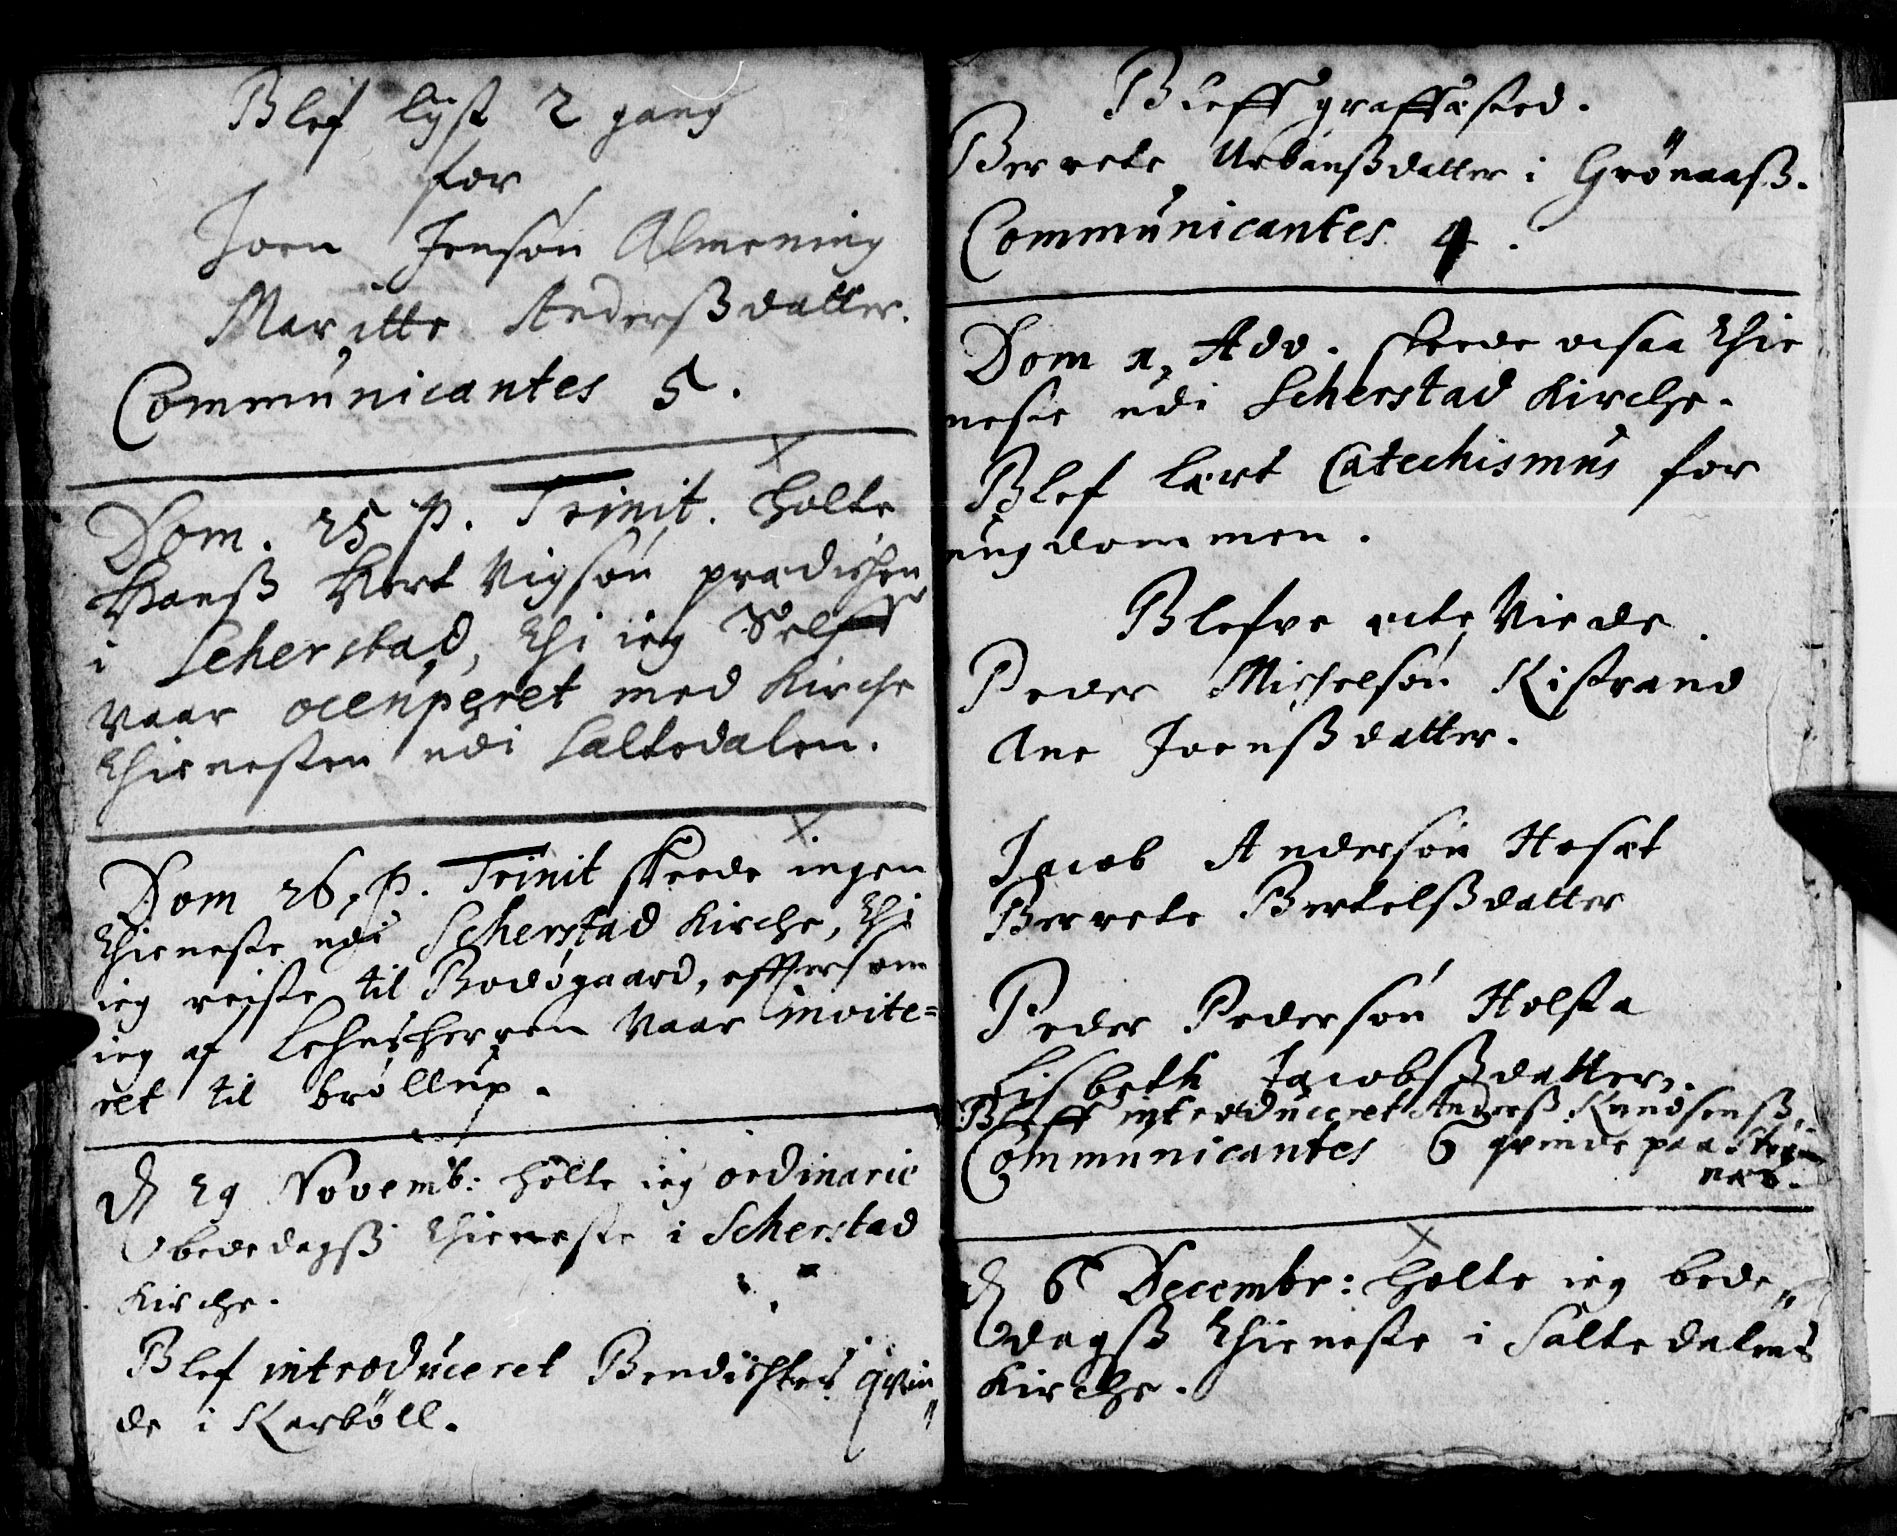 Blef lyst 2 gang
for
Joen Jensøn Almening
Maritte Anderssdatter.
Communicantes 5.
Dom. 25 p. Trinit. holte
Hanss Hert Vigsøn prædichen
i Scherstad, thi ieg Self
vaar occuperet med Kirche
thienesten udi Saltedalen.
Dom 26. p. Trinit skeede ingen
thieneste udi Scherstad Kirche, thi
ieg reiste til Bodøgaard, efftersom
ieg af Lehnsherren vaar invite=
ret til brøllup.
D 29 Novemb: holte ieg ordinarie
bededagss thieneste i Scherstad
Kirche.
Blef introduceret Bendichtes qvin„
de i Karbøll.
Bleff graffæsted.
Berrete Urbanssdatter i Grønaass.
Communicantes 4.
Dom 1, Adv. skeede ocsaa thie
neste udi Scherstad Kirche.
Blef lært Catechismus for
ungdommen.
Blefve ecte Viede.
Peder Michelsøn Kistrand
Ane Joenssdatter.
Jacob Andersøn Hosæt
Berrete Bertelssdatter
Peder Pedersøn Holsta
Lisbeth Jacobssdatter.
Bleff introduceret Anderss Knudsenss
Communicantes 6 qvinde paa
næs.
D 6 Decembr: holte ieg bede„
dagss thieneste i Saltedalens
Kirche.